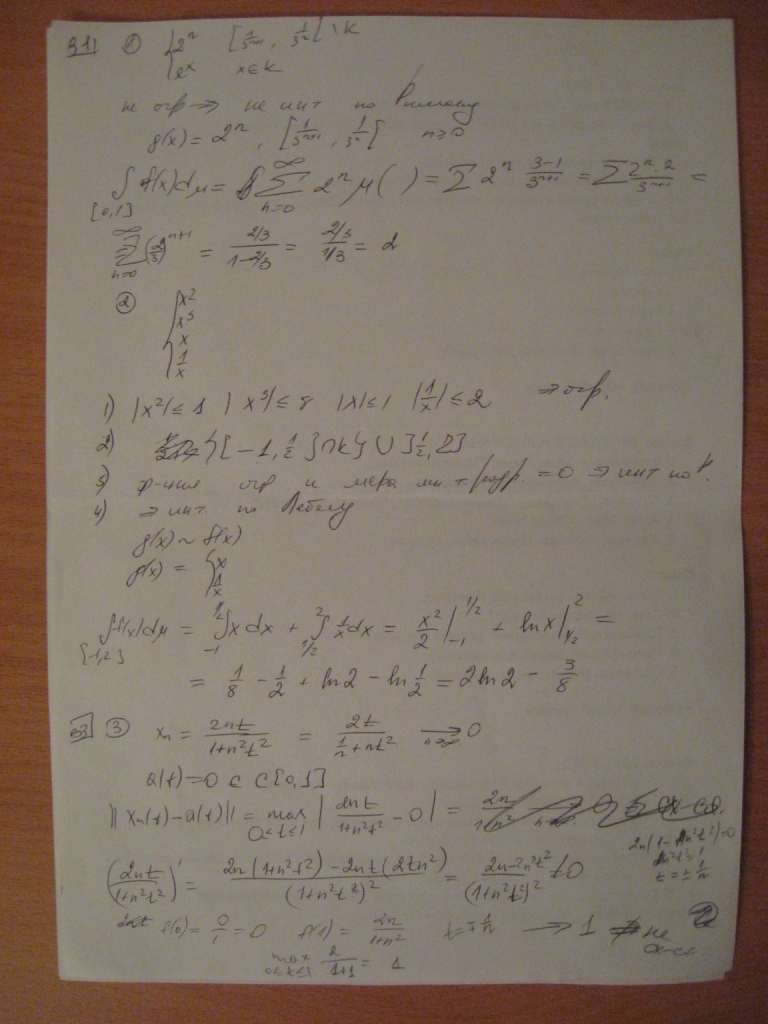 31) ① { 2ⁿ [1/3ⁿ⁺¹, 1/3ⁿ[ \ K
eˣ x∈K
не огр ⇒ не инт по Риману
g(x) = 2ⁿ, [1/3ⁿ⁺¹, 1/3ⁿ[ n≥0
∫ f(x)dμ = ∑ 2ⁿ μ( ) = ∑ 2ⁿ (3-1)/3ⁿ⁺¹ = ∑ 2ⁿ·2/3ⁿ⁺¹ =
[0,1] n=0 ∞
∑ (2/3)ⁿ⁺¹ = (2/3)/(1-2/3) = (2/3)/(1/3) = 2
n=0 ∞
② { x²
x³
x
1/x
1) |x²| ≤ 1 |x³| ≤ 8 |x| ≤ 1 |1/x| ≤ 2 ⇒ огр.
2) {[-1, 1/2]∩K} ∪ ]1/2, 2]
3) ф-ция огр и мера мн. т. разр. = 0 ⇒ инт по Р.
4) ⇒ инт. по Лебегу
g(x) ~ f(x)
g(x) = { x
1/x
∫ f(x)dμ = ∫ x dx + ∫ 1/x dx = x²/2 |₋₁^1/2 + ln x |_1/2^2 =
[-1,2] -1 1/2 1/2 2
= 1/8 - 1/2 + ln 2 - ln 1/2 = 2 ln 2 - 3/8
③ xₙ = 2nt/(1+n²t²) = 2t/(1/n + nt²) → 0
a(t) = 0 ∈ C[0,1]
||xₙ(t) - a(t)|| = max | 2nt/(1+n²t²) - 0 | = 2n/(1+n²)
0≤t≤1
2n(1-n²t²)=0
n²t²=1
t = ± 1/n
(2nt/(1+n²t²))' = (2n(1+n²t²) - 2nt(2tn²))/(1+n²t²)² = (2n-2n³t²)/(1+n²t²)² = 0
f(0) = 0/1 = 0 f(1) = 2n/(1+n²) t = ∓ 1/n → 1 ⇒ не
сх-ся
max 2/(1+1) = 1
0≤t≤1
②